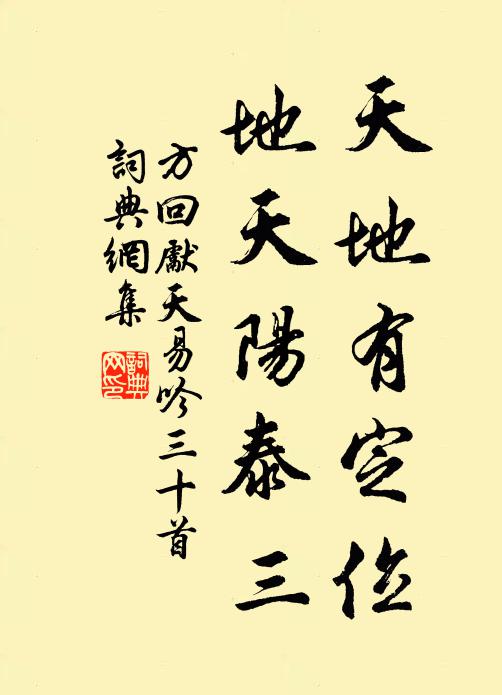 天地有定位
地天陽泰三
方回獻天易吟三十首
詞典網集
詞典网印